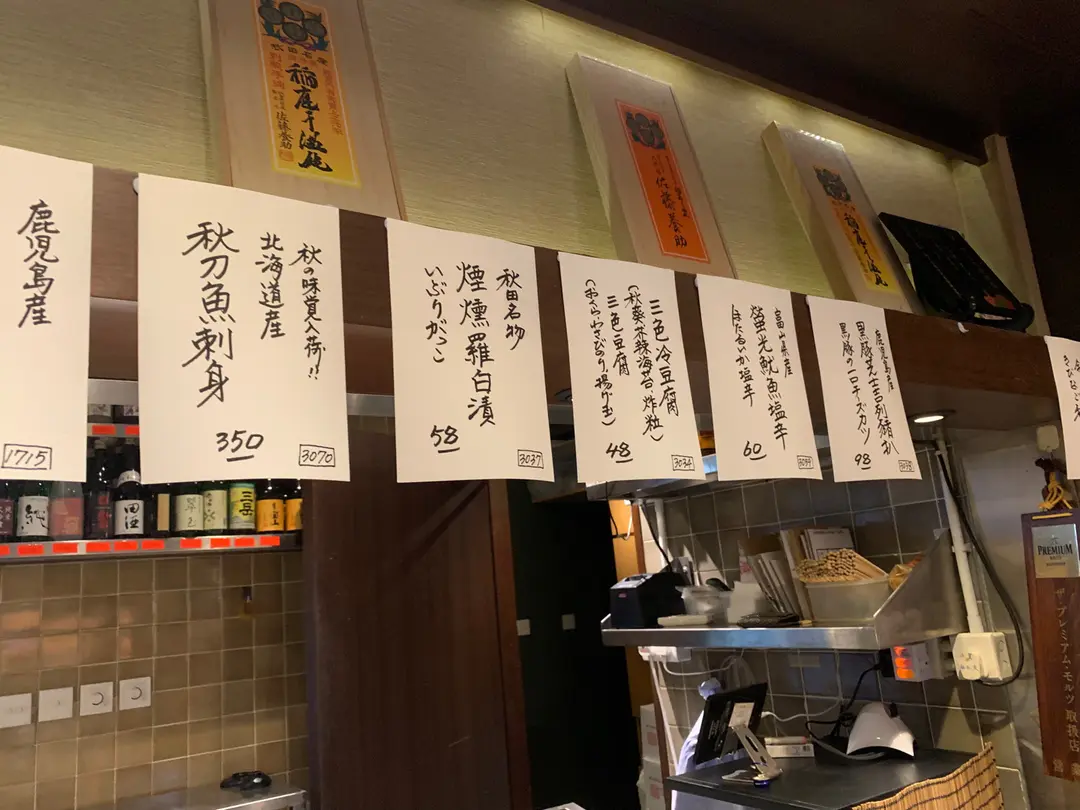 鹿児島産
1715
秋の味覚入荷!!
北海道産
秋刀魚刺身
350
3070
秋田名物
煙燻羅白漬
いぶりがっこ
58
3037
三色冷豆腐
(秋葵芥辣海苔炸粒)
三色豆腐
(おくらわさびのり揚げ玉)
48
3034
富山県産
螢光魷魚塩辛
ほたるいか塩辛
60
3039
鹿児島産
黒豚芝士吉列猪扒
黒豚の一口チーズカツ
98
稲庭干饂飩
佐藤養助
佐藤養助
稲庭干饂飩
純
田酒
三岳
PREMIUM
ザ・プレミアム・モルツ 取扱店